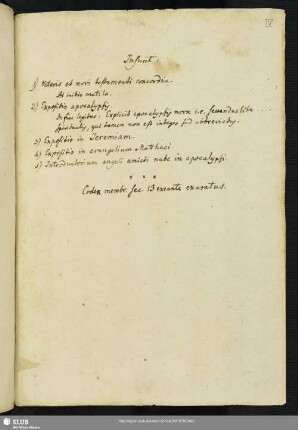 IV
Insunt:
1) Veteris et novi testamenti concordia.
At initio mutila.
2) Expositio apocalypsis
In fine legitur: Explicit apocalypsis nova i.e. secundus liber
spiritualis, qui tamen non est integer sed abbreviatus.
3) Expositio in Jeremiam.
4) Expositio in evangelium Matthaei.
5) Introductorium angeli amicti nube in apocalypsi.
* * *
Codex membr. sec. 13 exeunte exaratus.
SLUB